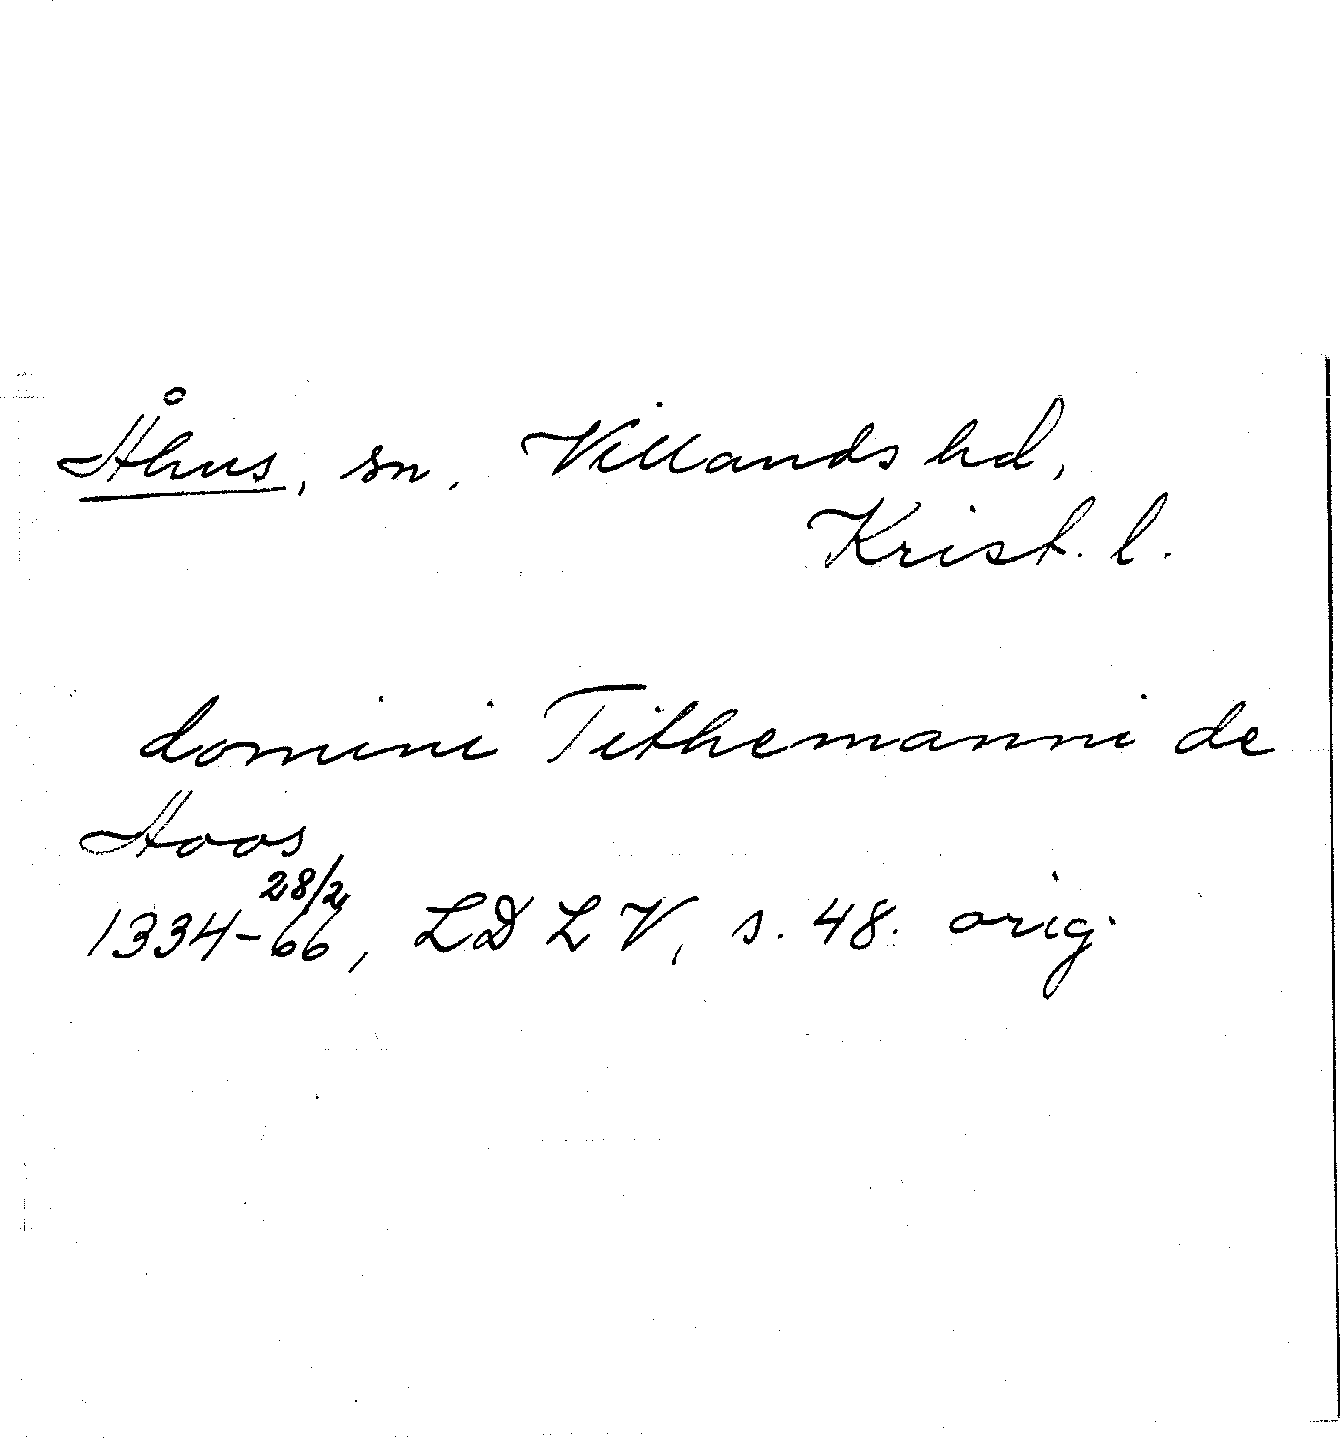 Åhus, sn. Villands hd,
Krist. l.
domini Tithemanni de
Aoos
28/2
1334-66, LD L V, s. 48. orig.